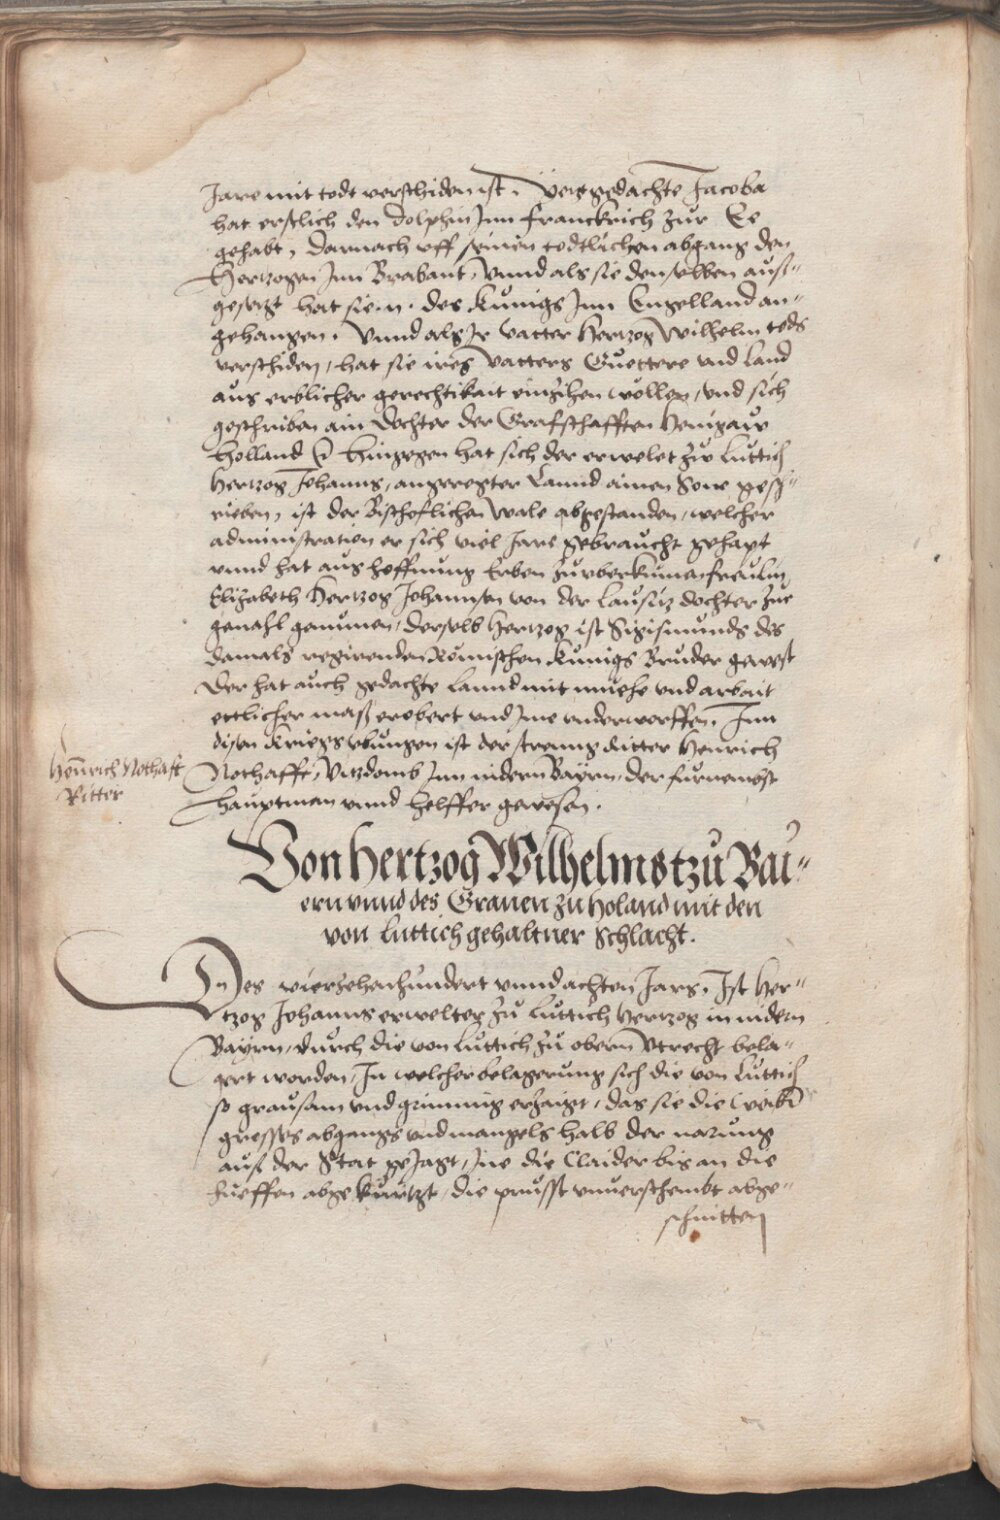 Jare mit todt verschiden ist. Jetztgedachte Jacoba
hat erstlich den dolphin Inn Franckrich zur Ee
gehabt, darnach uff seinen todtlichen abgang den
Hertzogen Inn Brabant, Vnnd als sie denselben auß-
gesetzt hat sie .n. des Kunigs Inn Engelland an-
gehangen. Vnnd als Ir vatter Hertzog Wilhelm tods
verschiden, hat sie ires Vatters Guettere vnd Land
aus erblicher gerechtikait einziehen wollen, vnd sich
geschriben ain dochter der Grafschafften Henigaw
Holland Hingegen hat sich der erwelet zu Luttich
Hertzog Johanns, angeregter Lannd ainen Herrn gesch-
rieben, ist der Bischoflichen Wale abgestanden, welcher
administration er sich viel Jare gebraucht gehapt
vnnd hat aus hoffnung Erben zu vberkumen freulin
Elizabeth Hertzog Johannsen von der Lausitz dochter zue
gemahl genumen, derselb Hertzog ist Sigismunds des
damals regirenden Römischen Kunigs Bruder gewest
Der hat auch gedachte Lannd mit muehe vnd arbait
ettlicher maß erobert vnd Ime underworffen. Inn
disen Kriegs ubungen ist der streng Ritter Henrich
Nothafft, Vitzdomb Inn nidern Bayrn, der furnemest
Hauptman vnnd helffer gewesen.
Henrich Nothaft
Ritter
Von Hertzog Wilhelms tzu Bai-
ern vnnd des Grauen zu Holand mit den
von Luttich gehaltner Schlacht.
Des vierzehenhundert vnnd achten Jars, Ist Her-
tzog Johanns erwelter zu Luttich Hertzog in nidern
Bayrn, durch die von Luttich zu obern Vtrecht bela-
gert worden, In welcher belagerung sich die von Luttich
so grausam vnd grimmig erzaigt, das sie die weiber
grosses abgangs vnd mangels halb der narung
auß der Stat gejagt, Ine die Claider bis an die
hueffen abgekurtzt, die prusst vnuerschembt abge-
schnitten